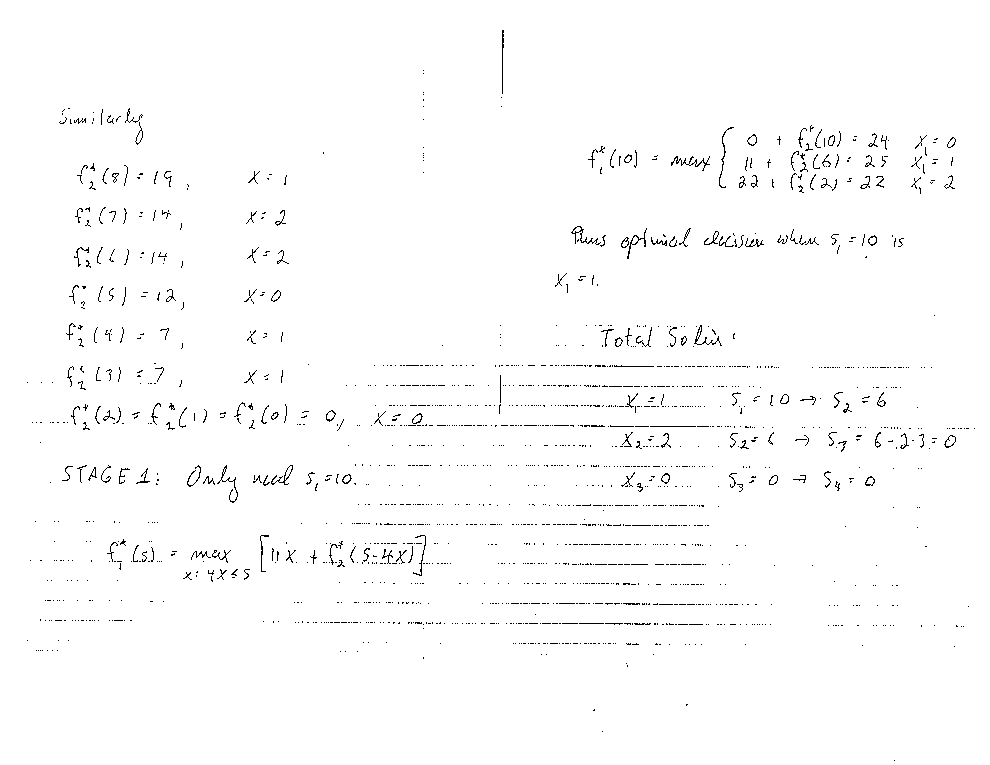 Similarly
f₂*(8) = 19, X = 1
f₂*(7) = 14, X = 2
f₂*(6) = 14, X = 2
f₂*(5) = 12, X = 0
f₂*(4) = 7, X = 1
f₂*(3) = 7, X = 1
f₂*(2) = f₂*(1) = f₂*(0) = 0, X = 0
STAGE 1: Only need s₁=10.
f₁*(s) = max [11X + f₂*(s-4X)]
x: 4X≤s
f₁*(10) = max { 0 + f₂*(10) = 24 X₁ = 0
11 + f₂*(6) = 25 X₁ = 1
22 + f₂*(2) = 22 X₁ = 2
Thus optimal decision when s₁ = 10 is
X₁ = 1.
Total Sol'n:
X₁ = 1 S₁ = 10 → S₂ = 6
X₂ = 2 S₂ = 6 → S₃ = 6-2·3 = 0
X₃ = 0 S₃ = 0 → S₄ = 0